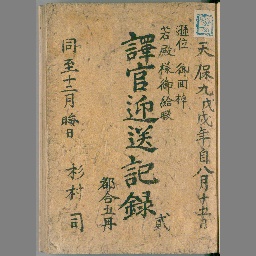 天保九戊戌年自八月十五日
遜位 御両粹
若殿様御給暇
譯官迎送記録
貳
都合五冊
同至十二月晦日
杉村司